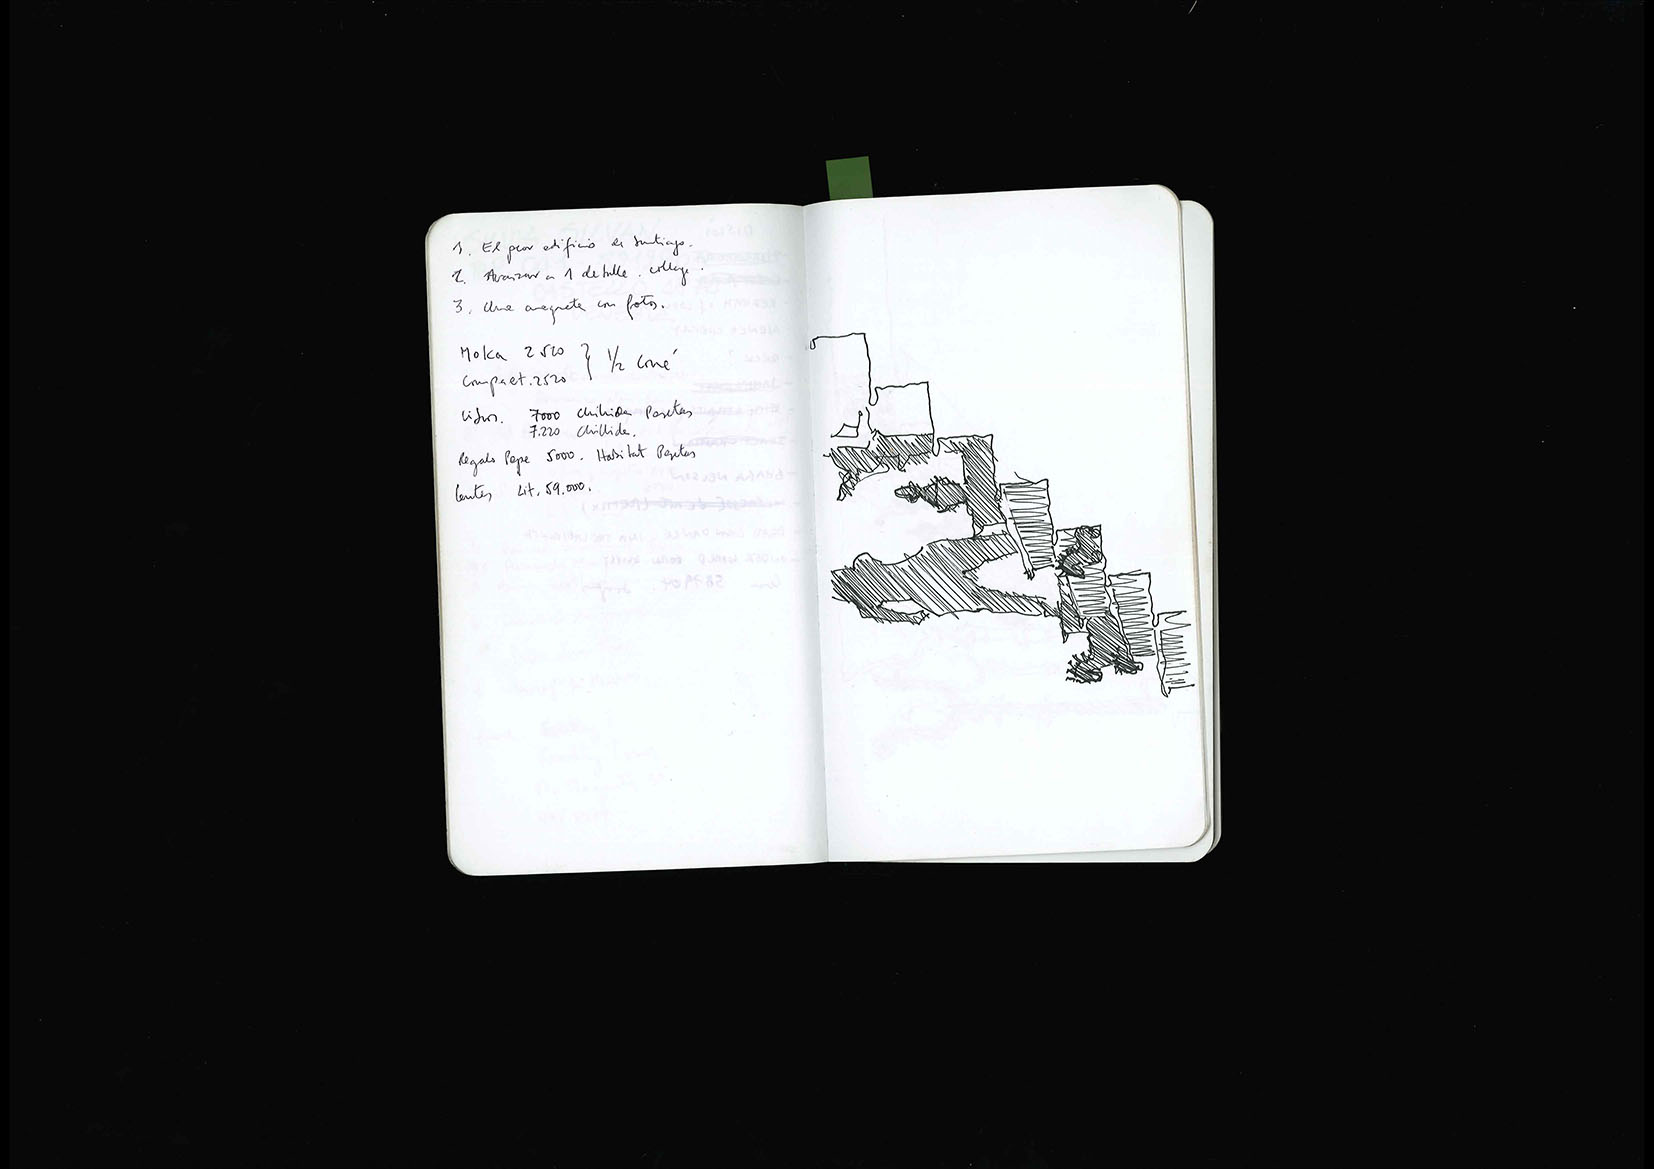 1. El peor edificio de Santiago.
2. Avanzar a 1 detalle. collage.
3. Una maqueta con fotos.
Moka 2520 } 1/2 Coné
Compact. 2520
Libros. 7000 Chillida Pesetas
7.220 Chillida.
Regalo Pepe 5000. Habitat Pesetas
Lentes Lit. 59.000.